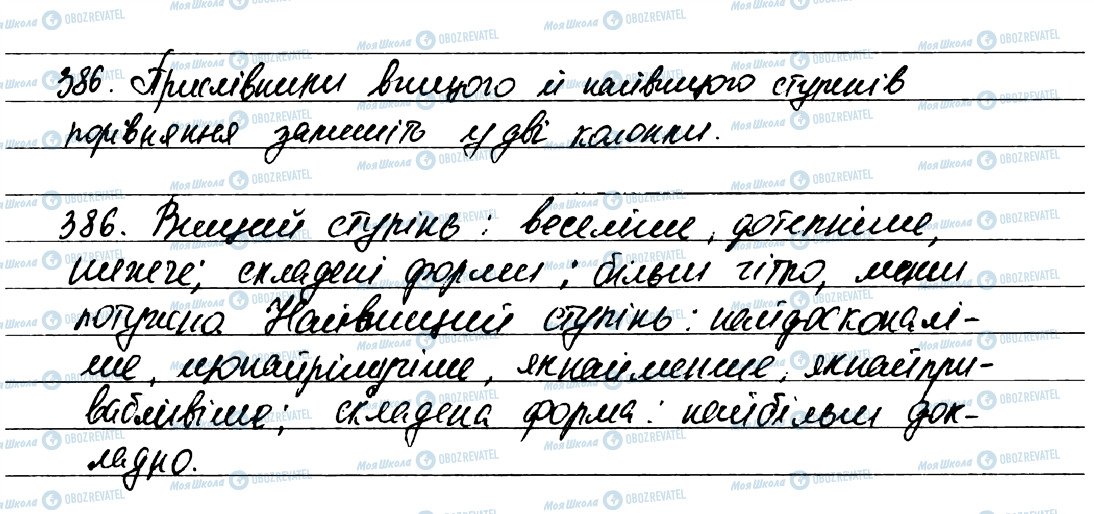 386. Прислівники вищого й найвищого ступенів
порівняння запишіть у дві колонки.
386. Вищий ступінь: веселіше, дотепніше,
нижче; складені форми: більш чітко, менш
потужно. Найвищий ступінь: найдосконалі-
ше, щонайрішучіше, якнайменше, якнайпри-
вабливіше; складена форма: найбільш док-
ладно.